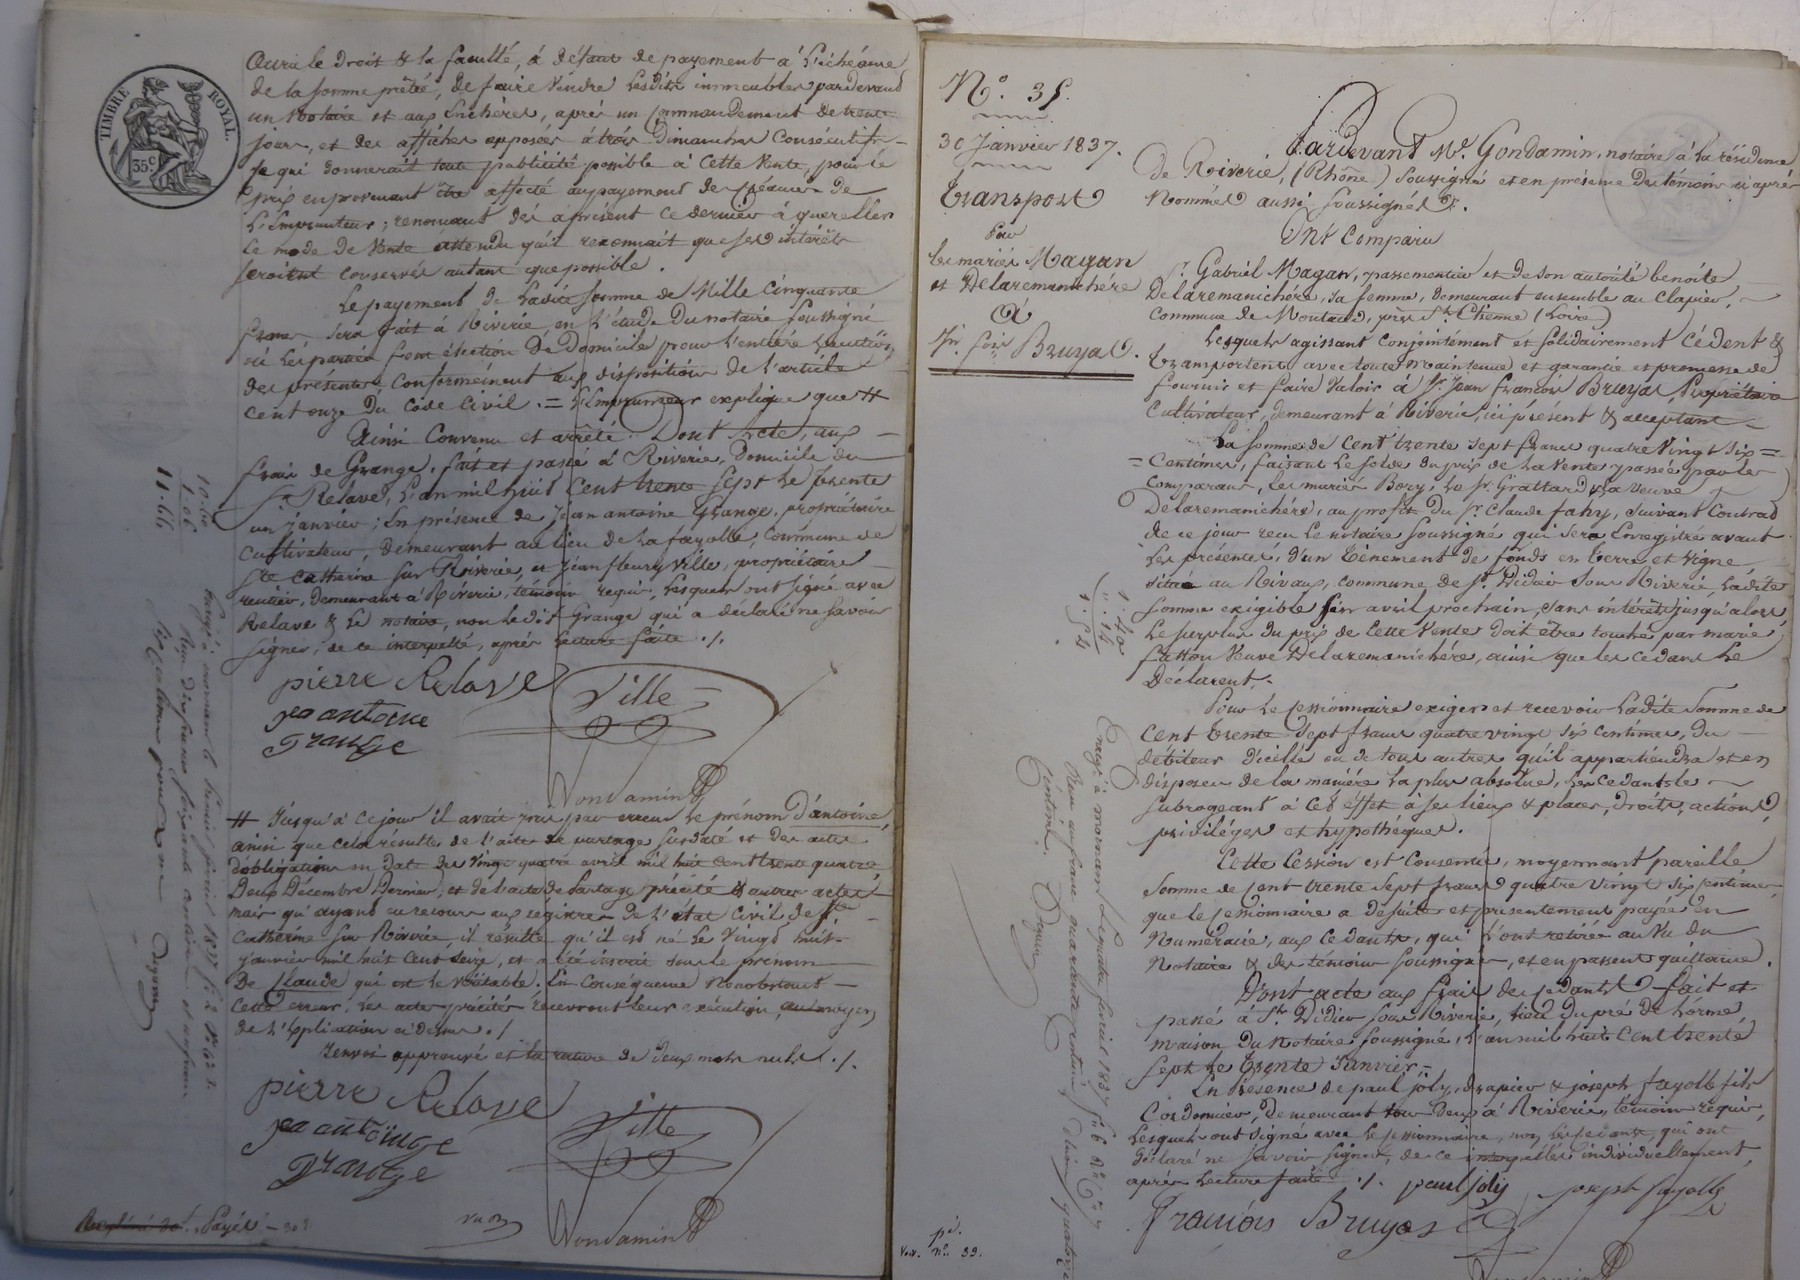 TIMBRE ROYAL.
35.c
Aura le droit & la faculté, à défaut de payement à l'échéance
de la somme prêtée, de faire vendre lesdits immeubles pardevant
un Notaire et aux Enchères, après un Commandement de trente
jours, et des affiches apposées à trois Dimanches Consécutifs
ce qui donnerait toute publicité possible à cette vente, pour le
prix en provenant être affecté au payement de créance de
L'Emprunteur ; renonçant dès àprésent ce dernier à quereller
le mode de vente attendu qu'il reconnait que ses intérêts
seroient conservés autant que possible.
Le payement de ladite somme de Mille cinquante
francs sera fait à Riverie, en l'étude du notaire soussigné
où les parties font élection de Domicile pour l'entière Exécution
des présentes conformément aux dispositions de l'article
cent onze du Code Civil. = L'Emprunteur explique que #
Ainsi Convenu et arrêté. Dont Acte, aux
frais de Grange, fait et passé à Riverie, Domicile du
Sr. Relave, l'an mil huit Cent trente sept le trente
un janvier ; En présence de Jean antoine Grange, propriétaire
Cultivateur, demeurant au lieu de la fayolle, Commune de
Ste Catherine sur Riverie, et Jean fleury Ville, propriétaire
rentier, demeurant à Riverie, témoins requis, lesquels ont signé avec
Relave & le notaire, non ledit Grange qui a déclaré ne savoir
signer, de ce interpellé, après lecture faite ./.
pierre Relave Ville
jea antoine
Grange
Gondamin
# Jusqu'à ce jour il avait pris par erreur le prénom d'antoine,
ainsi que cela résulte de l'acte de partage susdaté et des actes
d'obligation en date des vingt quatre avril mil huit cent trente quatre
Deux Décembre Dernier, et de l'acte de partage précité & autres actes
mais qu'ayant eu recours aux registres de l'état Civil de Ste
Catherine sur Riverie, il résulte qu'il est né le vingt huit
janvier mil huit Cent seize, et a été inscrit sous le prénom
De Claude qui est le véritable. En Conséquence Nonobstant
Cette erreur, les actes précités recevront leur exécution, au moyen
de l'Explication ci dessus ./.
Renvoi approuvé et la rature de deux mots nuls ./.
pierre Relave Ville
jea antoine
Grange
Gondamin
Payé
10.60
1.06
11.66
N°. 35.
30 Janvier 1837.
Transport
Par
les mariés Magan
et Delaremanichére
A
Jn. fois Bruyas.
1.40
0.14
1.54
Pardevant Me. Gondamin, notaire à la résidence
De Riverie, (Rhône) soussigné et en présence des témoins ci après
Nommés aussi soussignés.
Ont Comparu
Sr. Gabriel Magan, passementier et de son autorité benoite
Delaremanichére, sa femme, demeurant ensemble au Clapier,
Commune de Montaud, près St. Etienne (Loire)
Lesquels agissant Conjointement et solidairement Cédent &
transportent avec toute maintenue et garantie et promesse de
fournir et faire valoir à Sr. Jean françois Bruyas, Propriétaire
Cultivateur, demeurant à Riverie, ici présent & acceptant
La somme de Cent trente sept francs quatre vingt six =
= Centimes, faisant le solde du prix de la vente passée par les
Comparans, les mariés Bory, le Sr. Grattard & la veuve
Delaremanichére, au profit du Sr. Claude fahy, suivant Contrat
de ce jour reçu le notaire soussigné qui sera Enregistré avant
les présentes, d'un tènement de fonds en terre et vigne
situé au Rivaux, commune de St. Didier sous Riverie, ladite
somme exigible fin avril prochain, sans intérêts jusqu'alors,
le surplus du prix de cette vente doit être touché par marie
fattou Veuve Delaremanichére, ainsi que les cédans le
Déclarent.
Pour le Cessionnaire exiger et recevoir ladite somme de
Cent trente sept francs quatre vingt six centimes, du
débiteur d'icelle ou de tous autres qu'il appartiendra et en
disposer de la manière la plus absolue, les Cedants le
subrogeant à cet effet à ses lieux & places, droits, actions,
priviléges et hypothéques.
Cette Cession est Consentie, moyennant pareille
somme de cent trente sept francs quatre vingt six centimes
que le Cessionnaire a de suite et présentement payée en
Numéraire, aux Cedants, qui l'ont retirée au vu du
Notaire & des témoins soussignés, et en passent quittance.
Dont acte aux frais des cedants fait et
passé à St. Didier sous Riverie, lieu du pré de l'orme,
maison du Notaire soussigné, l'an mil huit Cent trente
sept le trente Janvier.
En Présence de paul joly, drapier & joseph fayolle fils
Cordonnier, Demeurant tous deux à Riverie, témoins requis,
lesquels ont signé avec le Cessionnaire, non les cedants, qui ont
déclaré ne savoir signer, de ce interpellés individuellement,
après lecture faite ./. paul joly joseph fayolle
François Bruyas
voir. No. 39.